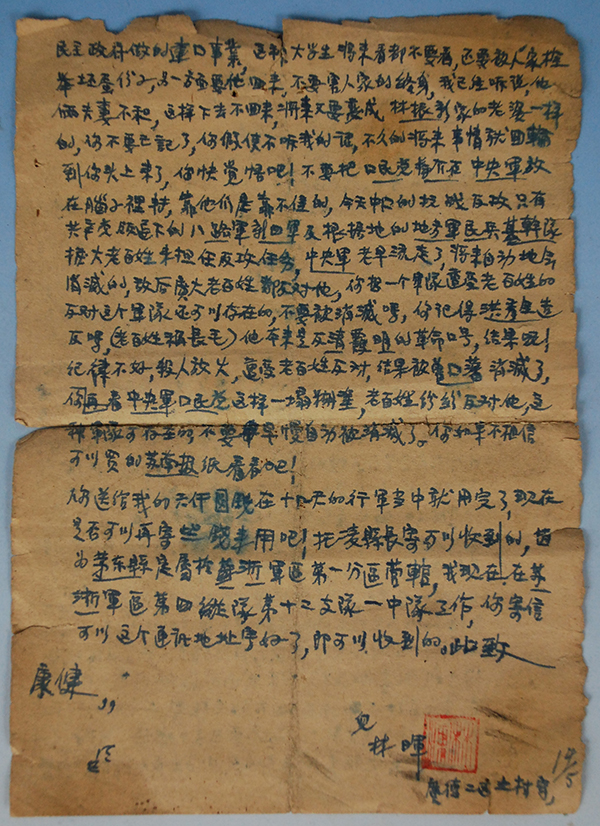 民主政府做的建口事業，这种大学生将来看都不要看，还要被人家檢
举坏蛋份子，另一方面要他回来，不要害人家的終身，我已經听说，他
俩夫妻不和，这样下去不回来，将来又要变成林根家的老婆一样
的，你不要亡記了，你假使不听我的话，不久的将来事情就回輪
到你头上来了，你快觉悟吧！不要把口民党蒋介石中央軍放
在腦子裡转，靠他们是靠不住的，今天中口的抗战反攻只有
共产党领导下的八路軍新四军及根据地的地方軍民兵基幹隊
广大老百姓来担任反攻任务，中央軍老早流走了，将来自动地会
消滅的，敌后廣大老百姓都反对他，你想一个軍隊遭受老百姓的
反对这个軍隊还可以存在的，不要被消滅嗎，你記得洪秀全造
反嗎，(老百姓称長毛)他本来是反清復明的革命口号，结果呢！
纪律不好，殺人放火，遭受老百姓反对，结果被曾口藩消滅了，
你再看中央軍口民党这样一塌糊塗，老百姓纷纷反对他，这
种軍隊可存在的不要早慢自动被消滅了。你如果不相信
可以買的苏南报纸看看吧！
你送给我的六仟圓錢在十天的行軍当中就用完了，现在
是否可以再寄些錢来用吧！托凌縣長寄可以收到的，因
为縣是屬於蘇浙軍區第一分區管轄，我现在在苏
浙軍區第四縱隊第十二支隊一中隊工作，你寄信
可以这个通讯地址寄好了，即可以收到的。此致
康健，，
兒
林暉
廣德二区村寄，
19/5